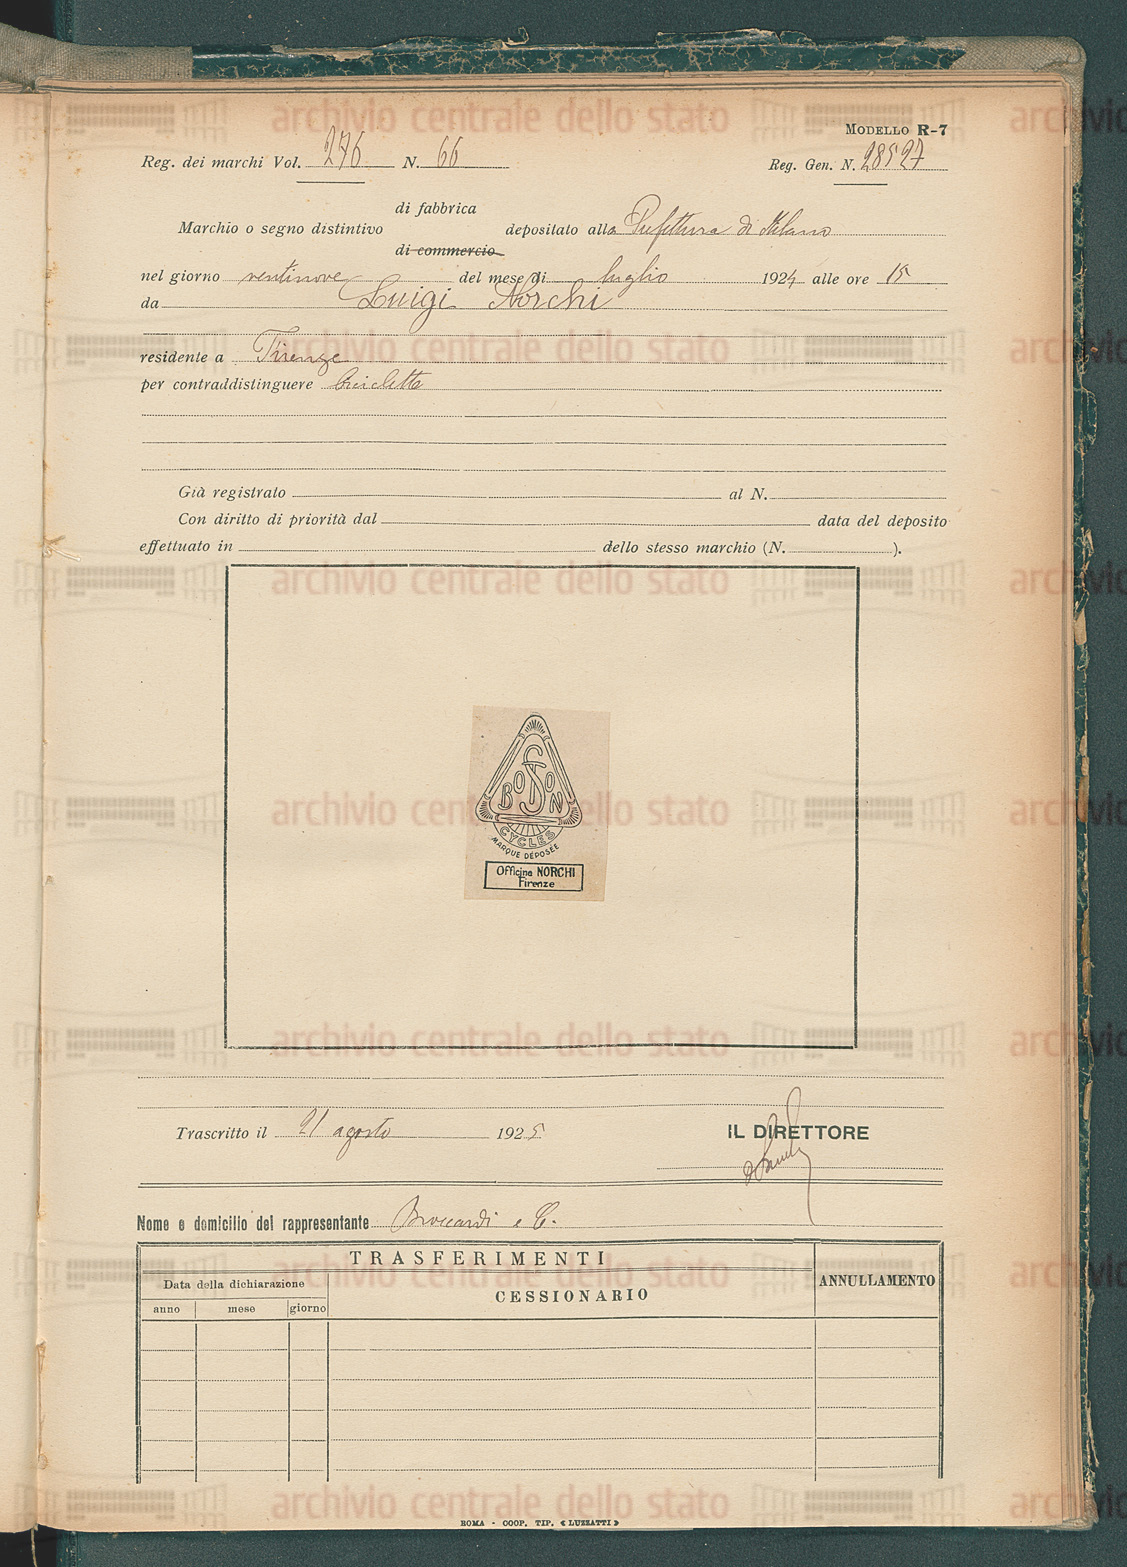 MODELLO R-7
Reg. dei marchi Vol. 276 N. 66 Reg. Gen. N. 28527
di fabbrica
Marchio o segno distintivo depositato alla Prefettura di Milano
di commercio
nel giorno ventinove del mese di luglio 1924 alle ore 15
da Luigi Norchi
residente a Firenze
per contraddistinguere biciclette
Già registrato al N.
Con diritto di priorità dal data del deposito
effettuato in dello stesso marchio (N. ).
BOSTON
CYCLES
MARQUE DÉPOSÉE
Officine NORCHI
Firenze
Trascritto il 21 agosto 1925 IL DIRETTORE
Nome e domicilio del rappresentante Broccardi e C.
TRASFERIMENTI
Data della dichiarazione
CESSIONARIO
ANNULLAMENTO
anno mese giorno
ROMA - COOP. TIP. « LUZZATTI »
archivio centrale dello stato